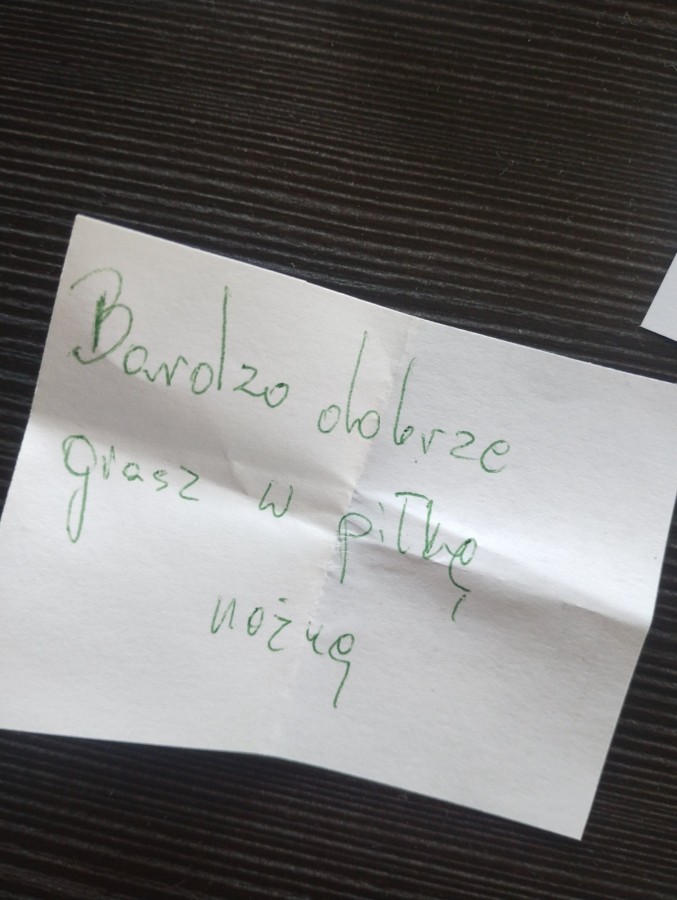 Bardzo dobrze
grasz w piłkę
nożną